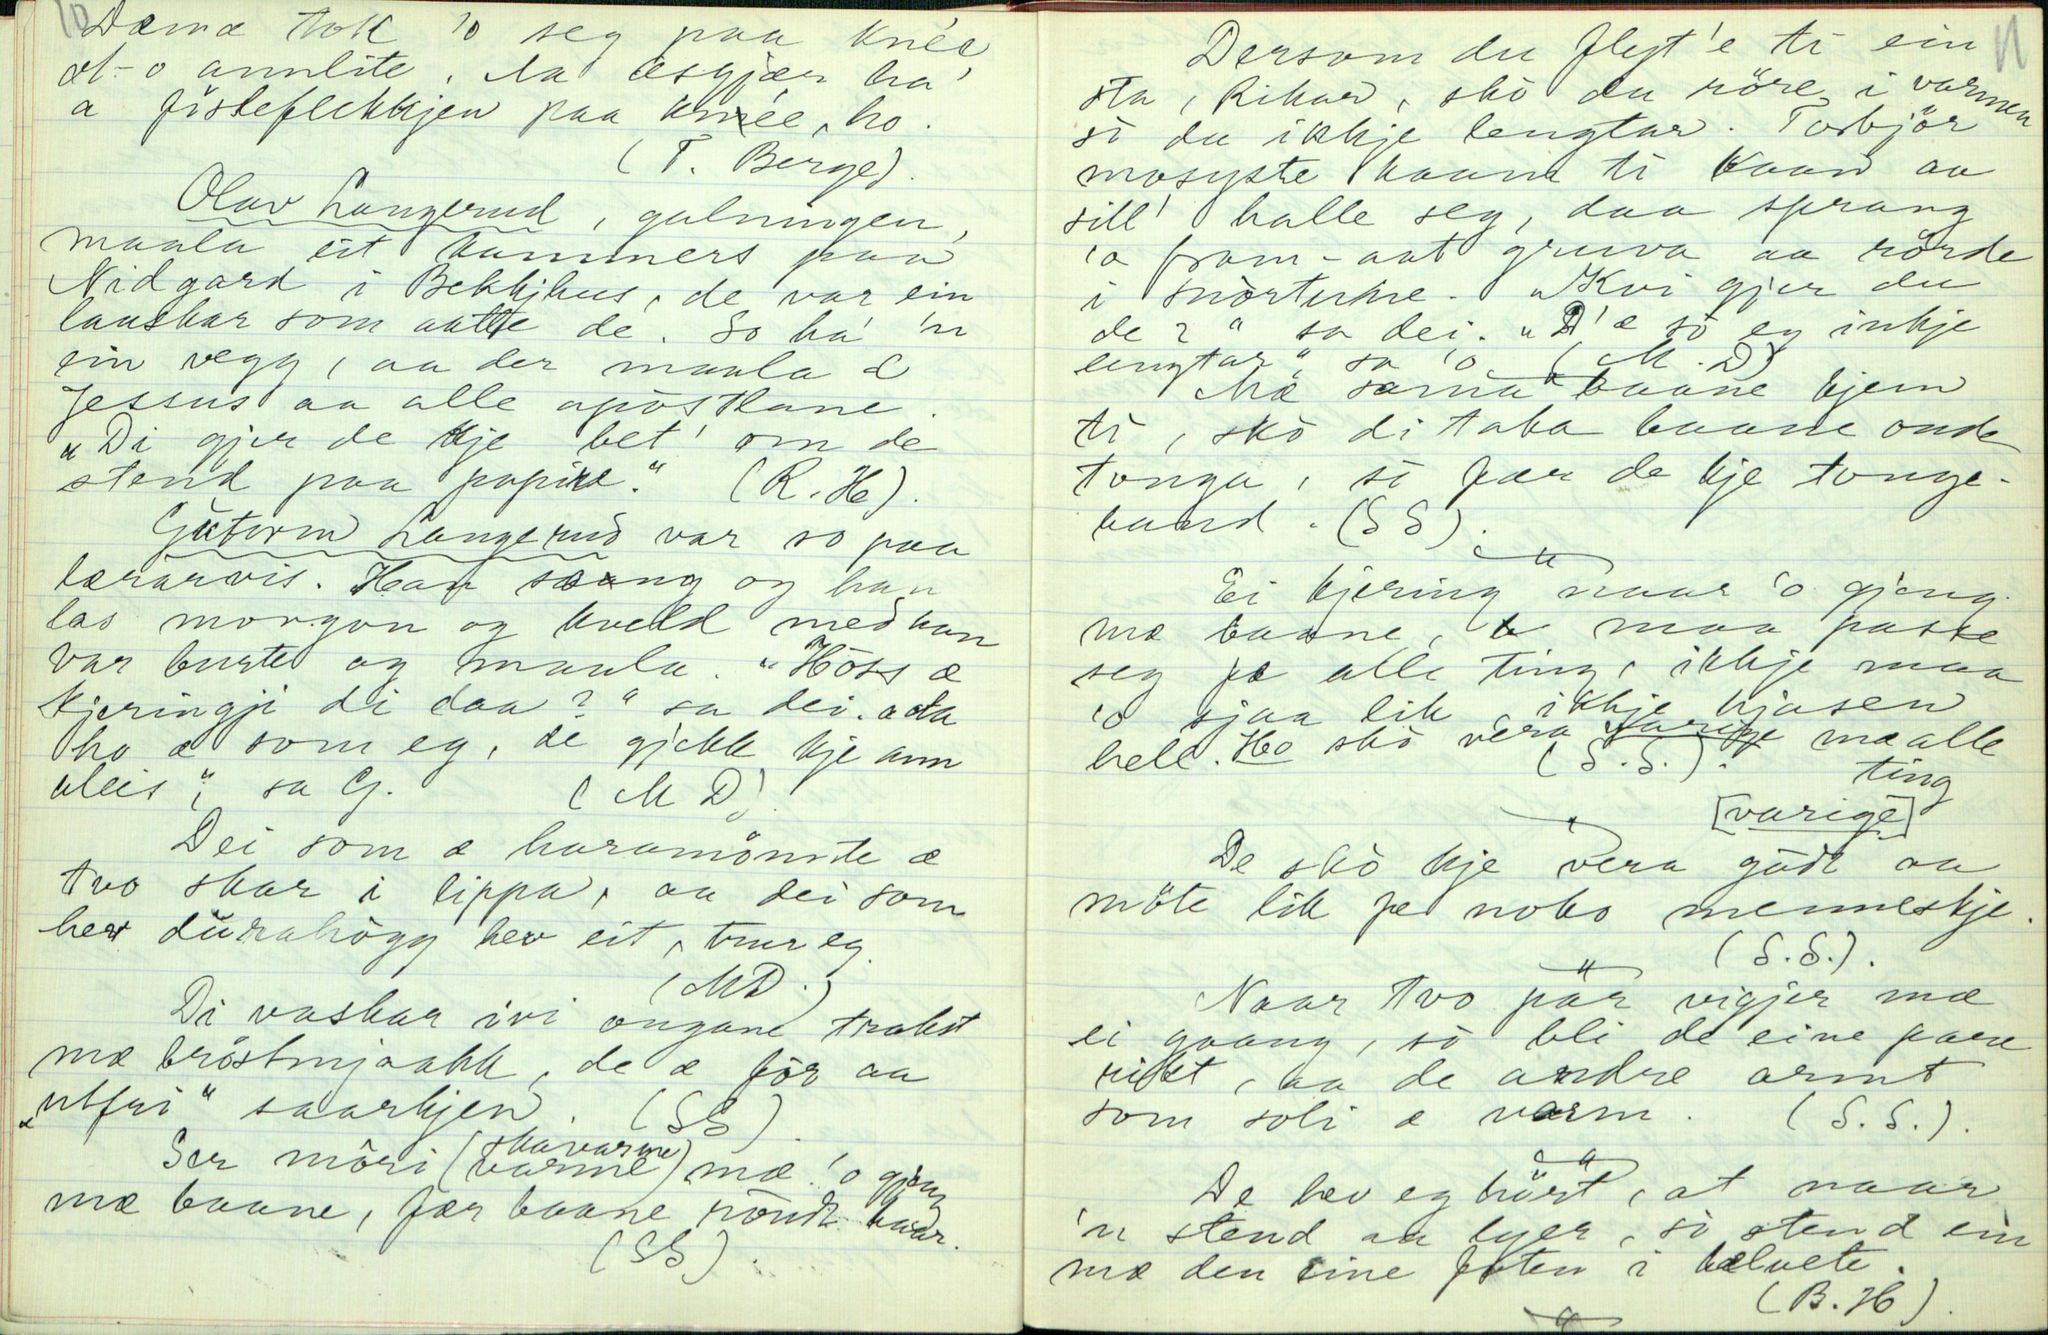 10
Dæmæ tok 'o seg paa knée
æt-o annlite, da æsgjær ha'
a fisteflekkjen paa knée, ho.
(T. Berge).
Olav Langerud, galningen,
maala eit kammers paa
Nidgard i Bekkjhus, de var ein
lauskar som aatte de. So ha' 'n
ein vegg, aa der maala 'n
Jessus aa alle apostlane.
"Di gjer de kje bet' om de
stend paa papire." (R. H).
Gutorm Langerud var so paa
lærarvis. Han saang og han
las morgon og kveld med han
var burte og maala. "Hoss æ
kjeringji di daa?" sa dei. "Aa
ho æ som eg, de gjekk kje ann
aleis", sa G. (M D).
Dei som æ haramönnte æ
tvo skar i lippa, aa dei som
hev durahögg hev eit, trur eg.
(MD.)
Di vaskar ivi ongane trakst
mæ bröstmjaakk, de æ för aa
"utfri" saarkjen. (SS).
Ser möri (skavarme) (varme) mæ 'o gjeng
mæ baane, fær baane röndt haar.
(SS).
11
Dersom du flyt'e ti ein
sta, Rikar, sko du röre i varmen
so du ikkje lengtar. Torbjör
mosyste kaam ti Kaan aa
sill' halle seg, daa sprang
'o fram-aat gruva aa rörde
i snörturne. "Kvi gjer du
de?" sa dei. "D'æ so eg inkje
lengtar" sa 'o. (M. D)
Mæ sama baane kjem
ti, sko di taka baane onde
tonga, so fær de kje tonge-
band. (SS).
Ei kjering naar 'o gjeng
mæ baane, maa passe
seg fe alle ting, ikkje maa
'o sjaa lik, ikkje hjasen
hell. Ho sko vera varige mæ alle
ting
(S. S.).
[varige]
De sko kje vera godt aa
möte lik fe noko menneskje.
(S. S.).
Naar tvo par vigjer mæ
ei gaang, so bli de eine pare
rikt, aa de andre armt
som soli æ varm. (S. S.).
De hev eg hört, at naar
'n stend aa lyer, so stend ein
mæ den eine foten i hælvete.
(B. H).